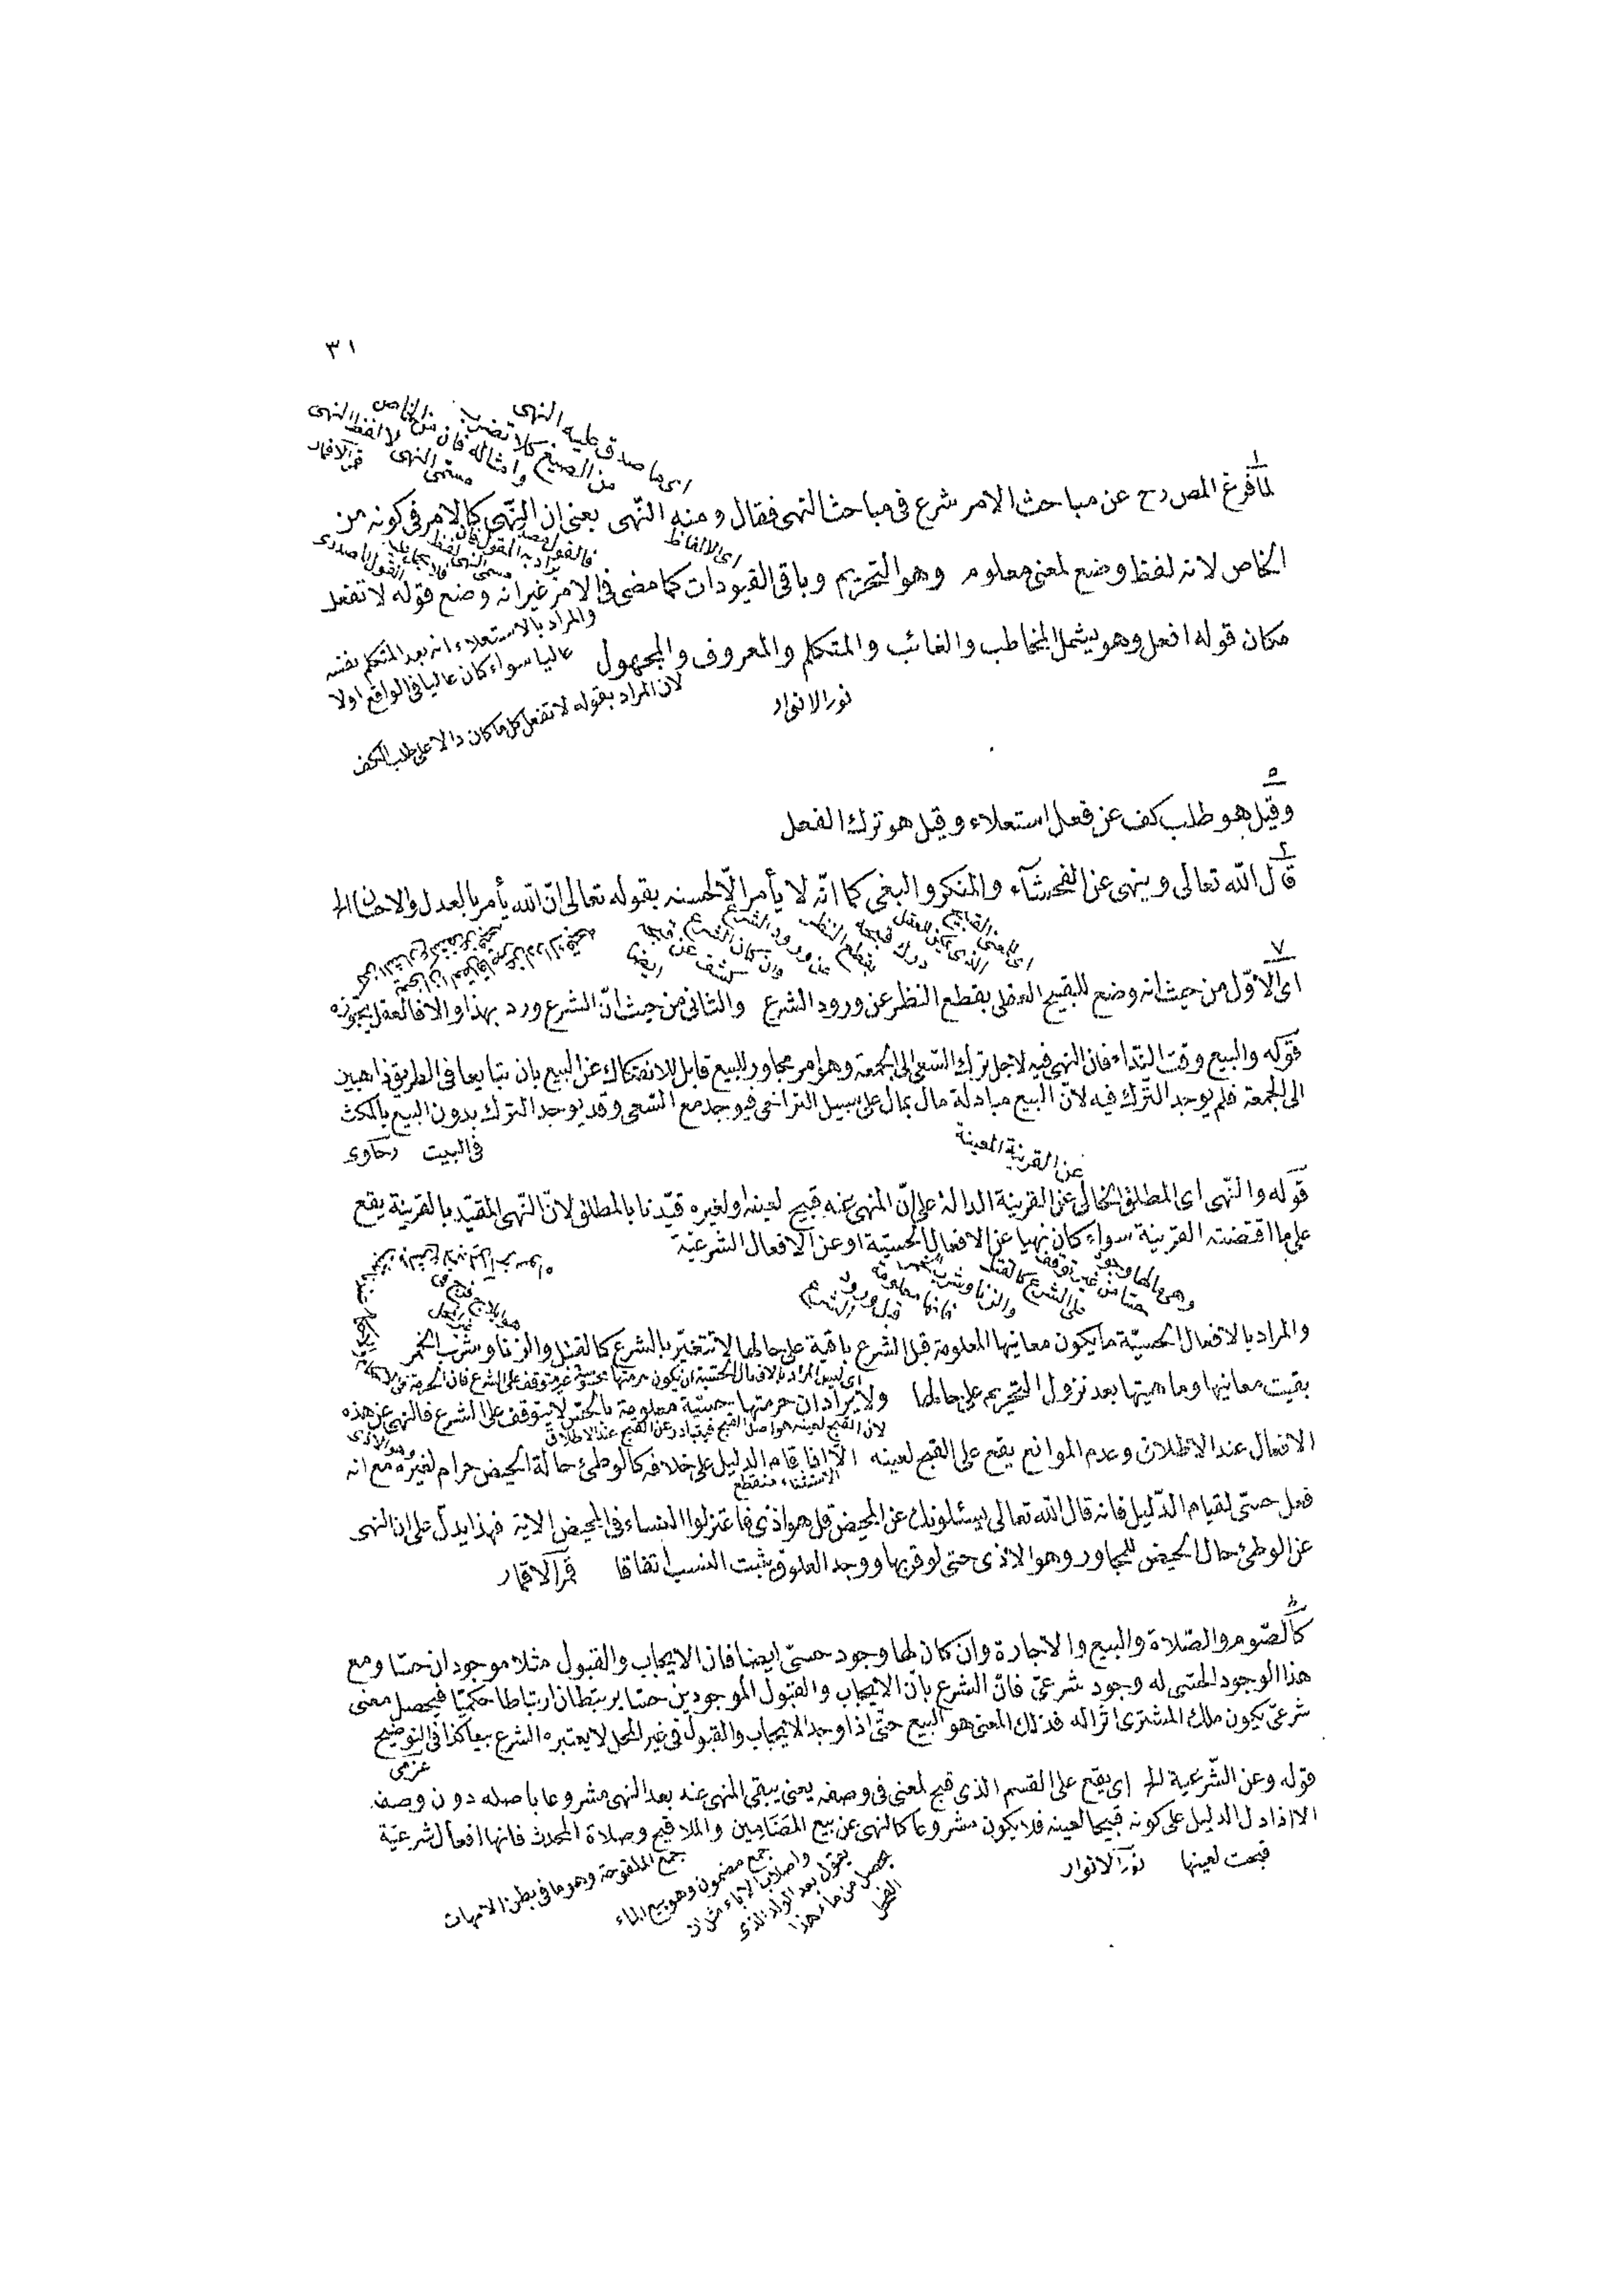 ٣١
اى ما صدق عليه النهى
من الصيغ كلا تضرب
وامثاله فان من الخاص
مسمّى النهى لا لفظ النهى
قمر الاقمار
١
لمّا فرغ المص رح عن مباحث الامر شرع فى مباحث النهى فقال ومنه النّهى يعنى ان النّهى كالامر فى كونه من
اى الالفاظ
الخاص لانه لفظ وضع لمعنى معلوم وهو التحريم وباقى القيودات كما مضى فى الامر غير انه وضع قوله لا تفعل
والمراد بالاستعلاء انه يعد المتكلم نفسه
عاليا سواء كان عاليا فى الواقع اولا
مكان قوله افعل وهو يشمل المخاطب والغائب والمتكلم والمعروف والمجهول
لان المراد بقوله لا تفعل كل ما كان دالا على طلب الكف
نور الانوار
٥
وقيل هو طلب كف عن فعل استعلاء وقيل هو ترك الفعل
قال الله تعالى وينهى عن الفحشآء والمنكر والبغى كما انّه لا يأمر الّا لحسنه بقوله تعالى انّ الله يأمر بالعدل والاحسان الخ
٧
اى الاوّل من حيث انه وضع للقبيح العقلى بقطع النظر عن ورود الشرع والثانى من حيث انّ الشرع ورد بهذا والا فالعقل يجوّزه
قوله والبيع وقت النداء فان النهى فيه لاجل ترك السّعى الى الجمعة وهو امر مجاور للبيع قابل للانفكاك عن البيع بان يتبايعا فى الطريق ذاهبين
الى الجمعة فلم يوجد التّرك فيه لانّ البيع مبادلة مال بمال على سبيل التراضى فيوجد مع السّعى وقد يوجد الترك بدون البيع بالمكث
فى البيت رهاوى
عن القرينة المعينة
قوله والنّهى اى المطلق الخالى عن القرينة الدالة على انّ المنهى عنه قبيح لعينه او لغيره قيّدنا بالمطلق لانّ النّهى المقيّد بالقرينة يقع
على ما اقتضته القرينة سواء كان نهيا عن الافعال الحسيّة او عن الافعال الشرعيّة
والمراد بالافعال الحسيّة ما يكون معانيها المعلومة قبل الشرع باقية على حالها لا تتغيّر بالشرع كالقتل والزنا وشرب الخمر
بقيت معانيها وماهيتها بعد نزول التحريم على حالها ولا يراد ان حرمتها حسيّة معلومة بالحسّ لا يتوقف على الشرع فالنهى عن هذه
لان القبح لعينه هو اصل القبح فيتبادر عن القبح عند الاطلاق
وهو الاذى
الافعال عند الاطلاق وعدم الموانع يقع على القبح لعينه الّا اذا قام الدليل على خلافه كالوطئ حالة الحيض حرام لغيره مع انه
الاستثناء منقطع
فعل حسّى لقيام الدّليل فانه قال الله تعالى يسئلونك عن المحيض قل هو اذى فاعتزلوا النساء فى المحيض الاية فهذا يدلّ على ان النهى
عن الوطئ حال الحيض للمجاور وهو الاذى حتى لو قربها ووجد العلوق يثبت النسب اتفاقا قمر الاقمار
٨
كالصّوم والصّلاة والبيع والاجارة وان كان لها وجود حسّى ايضا فان الايجاب والقبول مثلا موجودان حسّا ومع
هذا الوجود الحسّى له وجود شرعىّ فانّ الشرع بانّ الايجاب والقبول الموجودين حسّا يرتبطان ارتباطا حكميّا فيحصل معنى
شرعىّ يكون ملك المشترى اثرا له فذلك المعنى هو البيع حتّى اذا وجد الايجاب والقبول فى غير المحل لا يعتبره الشرع بيعا كذا فى التوضيح
عزمى
قوله وعن الشّرعية الخ اى يقع على القسم الذى قبح لمعنى فى وصفه يعنى يبقى المنهى عنه بعد النهى مشروعا باصله دون وصفه
الا اذا دل الدليل على كونه قبيحا لعينه فلا يكون مشروعا كالنهى عن بيع المَضَامِين والملاقيح وصلاة المحدث فانها افعال شرعيّة
قبحت لعينها نور الانوار
جمع الملقوحة وهو ما فى بطن الامهات
جمع مضمون وهو بيع الماء
واصلاب الاباء مثل ان
يقول بعد الولد الذى
يحصل من ماء هذا
الفحل